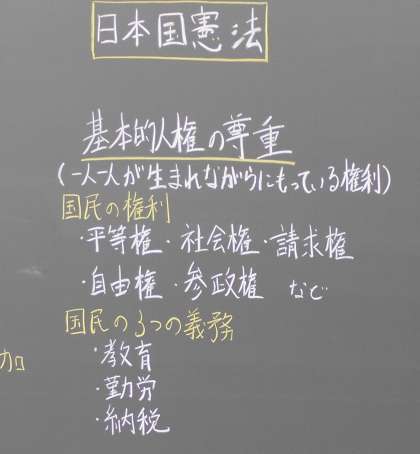 日本国憲法
基本的人権の尊重
(一人一人が生まれながらにもっている権利)
国民の権利
・平等権・社会権・請求権
・自由権・参政権 など
国民の3つの義務
・教育
加
・勤労
・納税